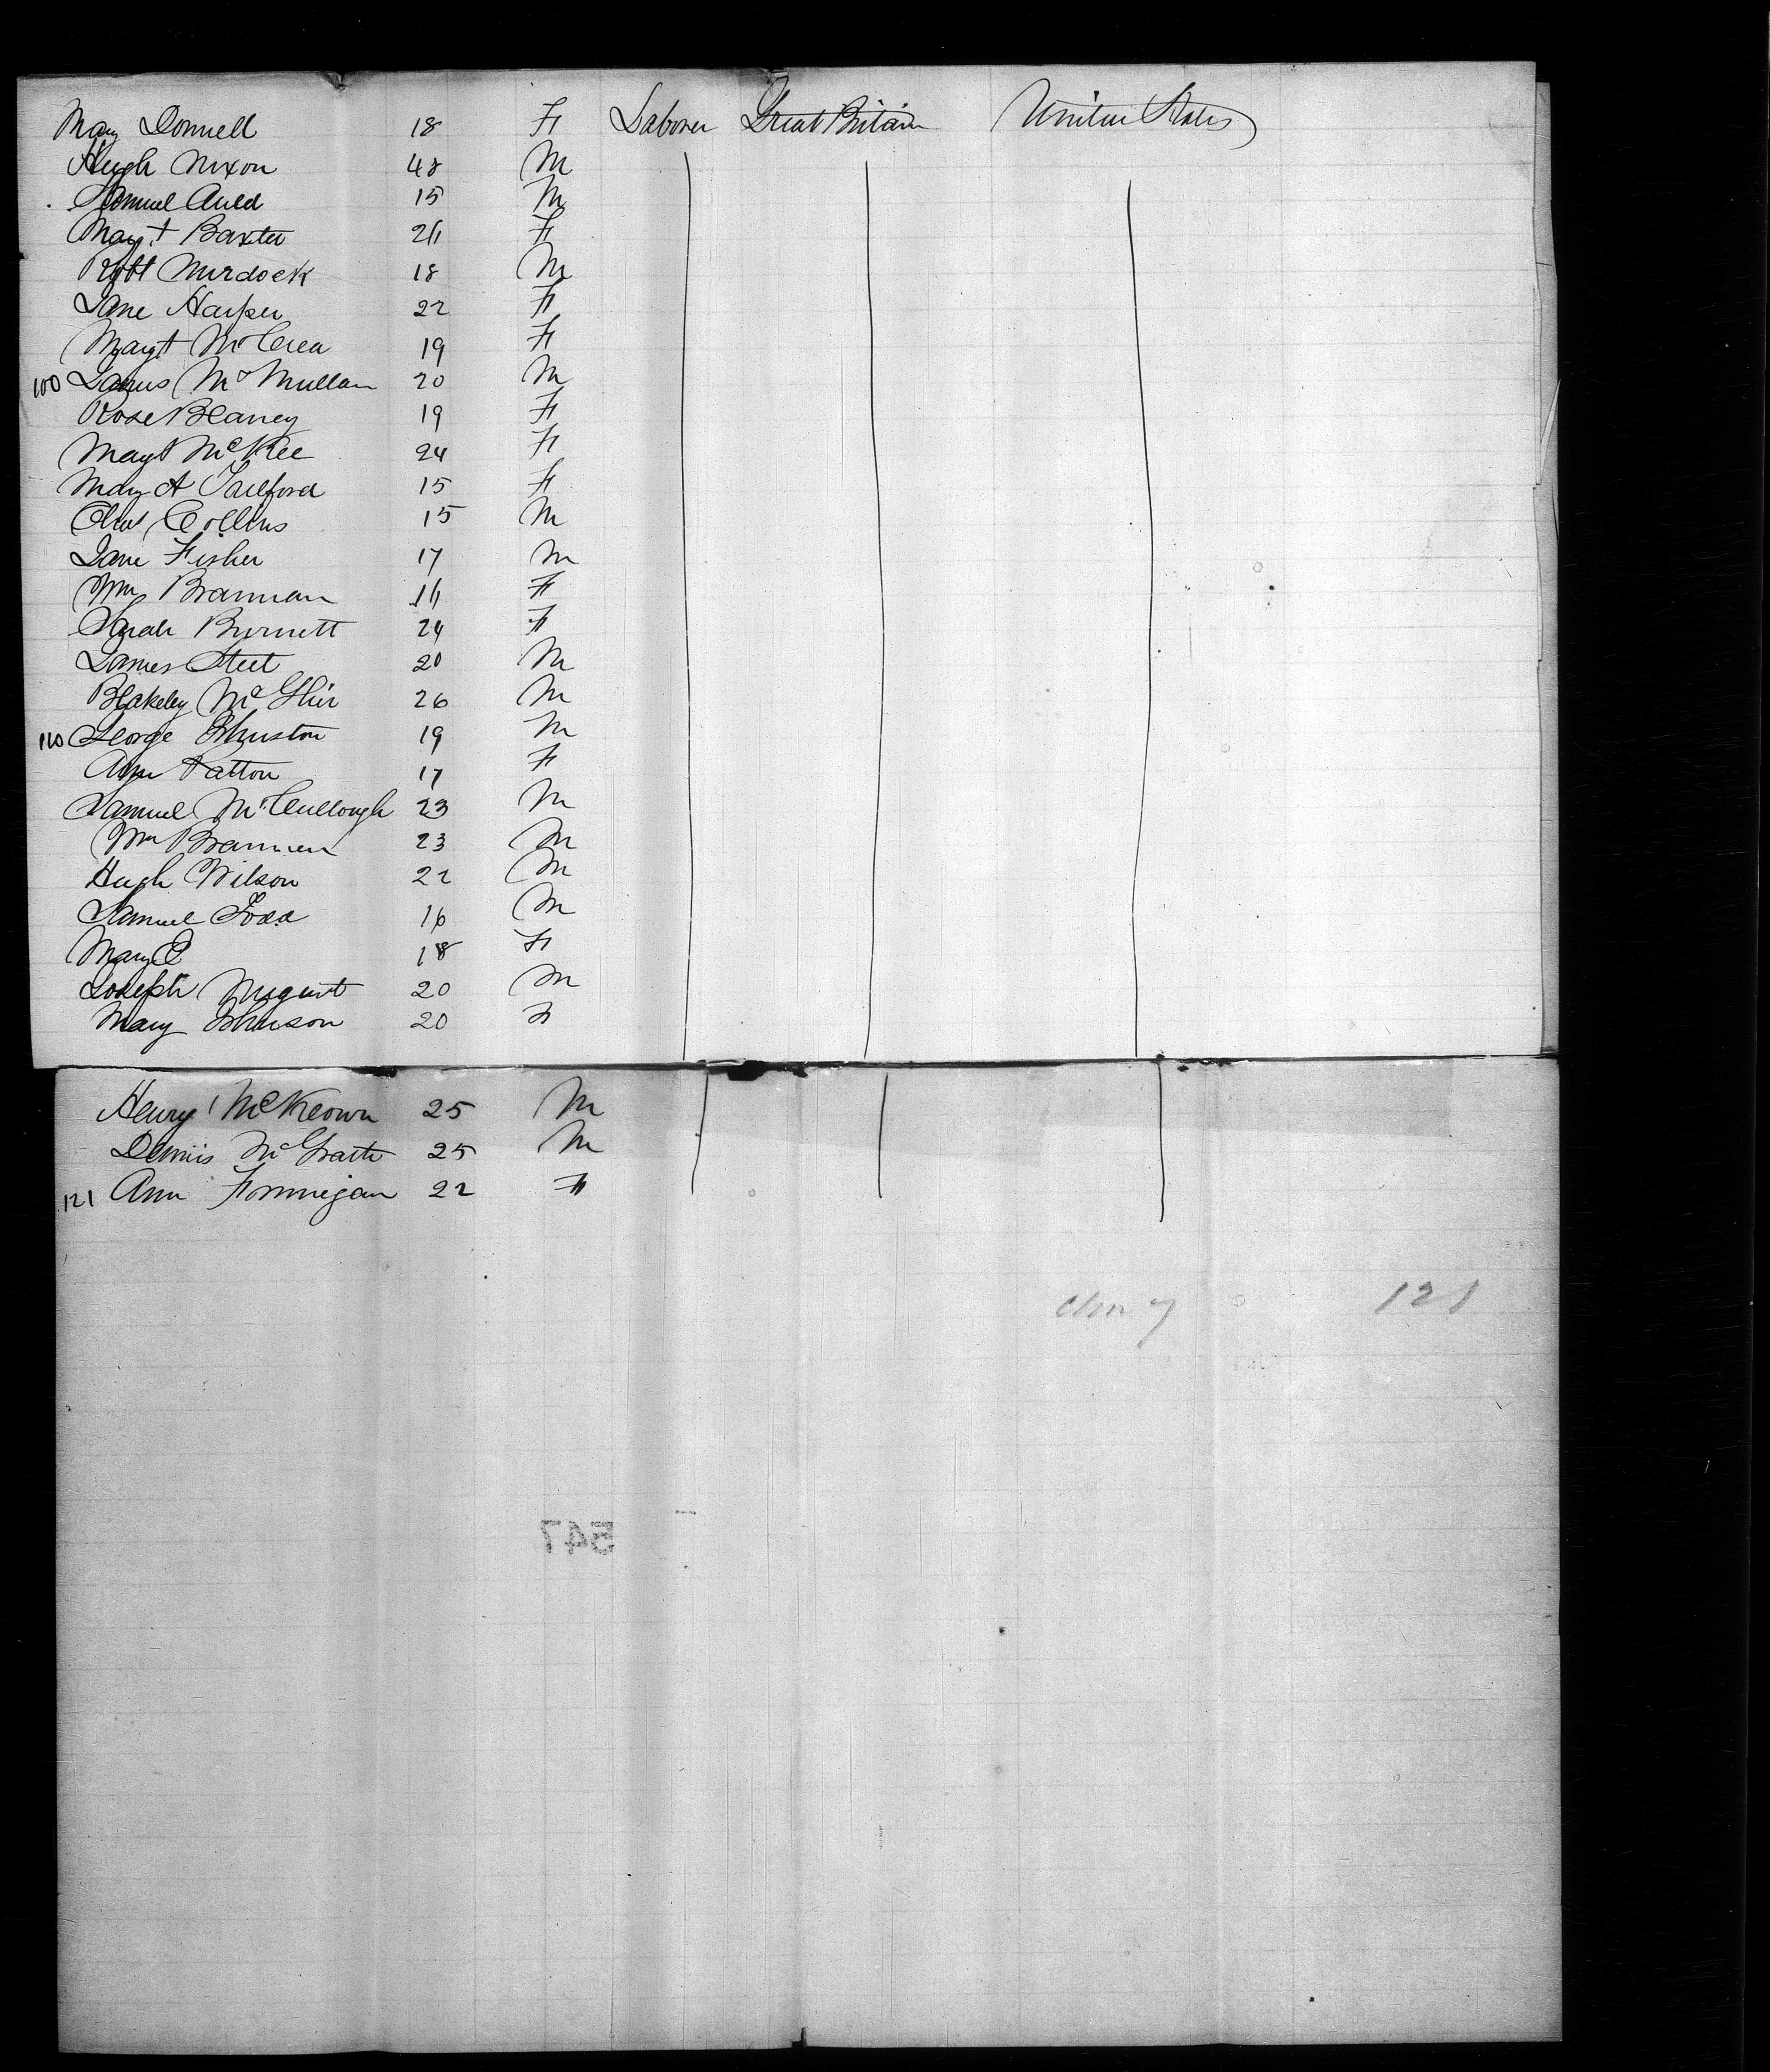 Mary Donnell 18 F Laborer Great Britain United States
Hugh Nixon 48 M
Samuel Auld 15 M
Margt Baxter 21 F
Robt Murdock 18 M
Jane Harper 22 F
Margt McCrea 19 F
100 James McMullan 20 M
Rose Blaney 19 F
Margt McKee 24 F
Mary A Tailford 15 F
Chas Collins 15 M
Jane Fisher 17 M
Wm Brannan 11 F
Sarah Burnett 24 F
James Steet 20 M
Blakeley McGhir 26 M
110 George Johnston 19 M
Ann Patton 17 F
Samuel McCullough 23 M
Wm Brannen 23 M
Hugh Wilson 22 M
Samuel Todd 16 M
Mary E 18 F
Joseph Nugent 20 M
Mary Johnson 20 F
Henry McKeown 25 M
Dennis McGrath 25 M
121 Ann Finnigan 22 F
121
547